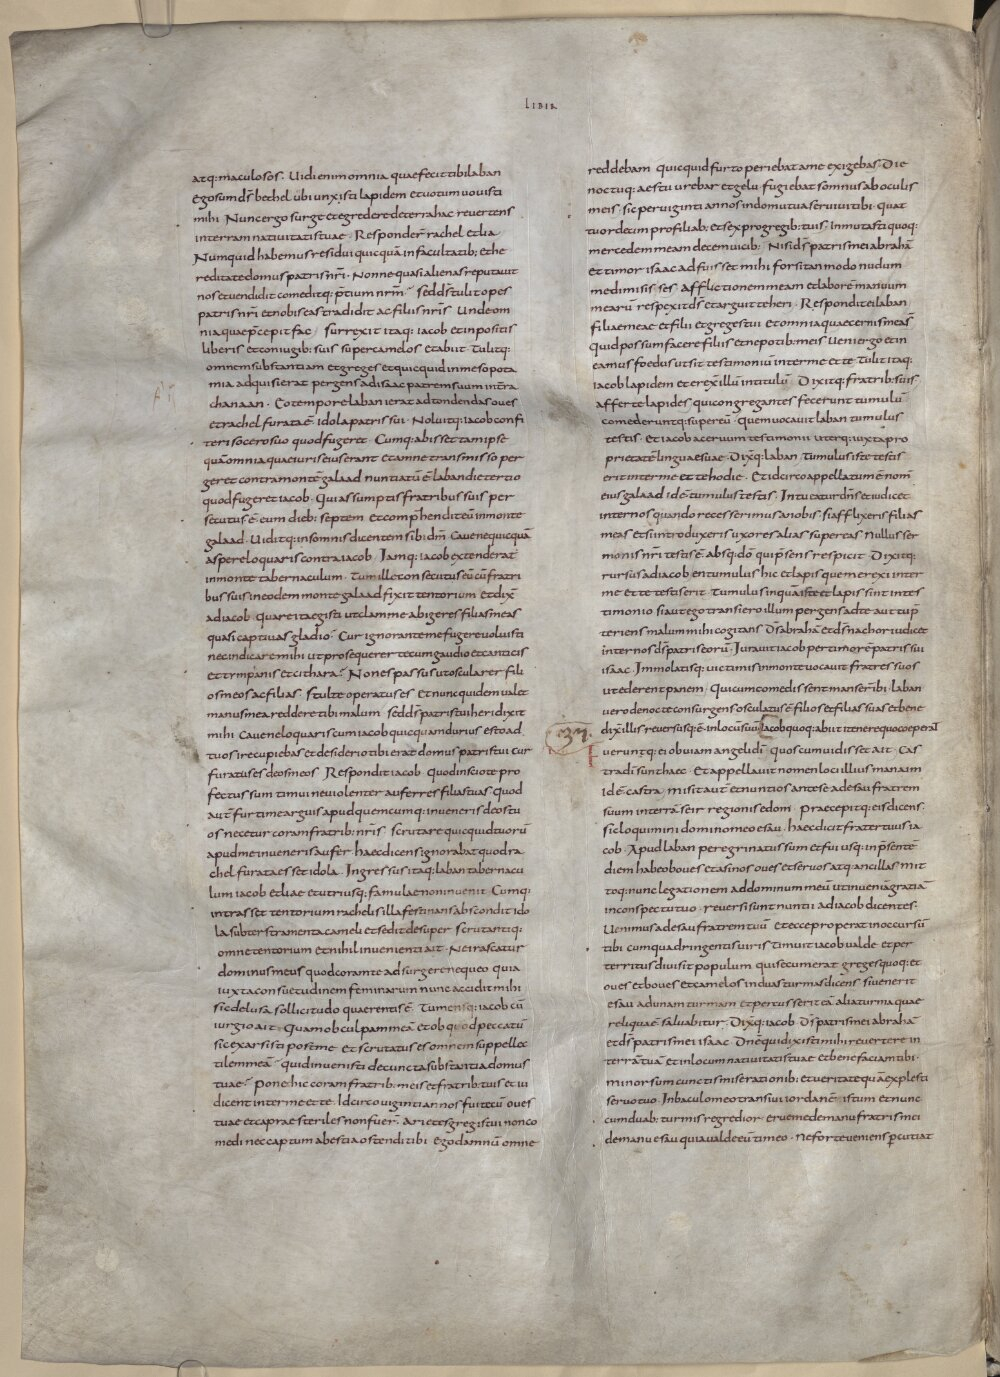 LIBER
atq: maculosos. Uidi enim omnia quae fecit tibi laban
Ego sum d̄s bethel ubi unxisti lapidem et uotum uouisti
mihi. Nunc ergo surge et egredere de terra hac reuertens
in terram natiuitatis tuae. Responder̄ rachel et lia
Numquid habemus residui quicquā in facultatib: et he
reditate domus patris n̄ri. Nonne quasi alienas reputauit
nos et uendidit comeditq: p̄tium n̄rm̄. sed d̄s tulit opes
patris n̄ri et nobis eas tradidit ac filiis n̄ris. Unde om
nia quae p̄cepit fac. surrexit itaq: iacob et inpositis
liberis et coniugib: suis super camelos et abiit. Tulitq:
omnem substantiam et greges et quicquid in mesopota
mia adquisierat pergens ad isaac patrem suum in t̄ra
chanaan. Eo tempore laban ierat ad tondendas oues
et rachel furata ē idola patris sui. Noluitq: iacob confi
teri socero suo quod fugeret. Cumq: abisset tam ipse
quā omnia quae iuris eius erant et amne transmisso per
geret contra monte galaad nuntiatū ē laban die tertio
quod fugeret iacob. Qui assumptis fratribus suis per
secutus ē eum dieb: septem et comp̄hendit eū in monte
galaad. Uiditq: in somnis dicentem sibi dm̄. Caue ne quicquā
aspere loquaris contra iacob. Iamq: iacob extenderat
in monte tabernaculum. Tum ille consecutus eū cū fratri
bus suis in eodem monte galaad fixit tentorium et dix̄
ad iacob. Quare ita egisti ut clam me abigeres filias meas
quasi captiuas gladio. Cur ignorante me fugere uoluisti
nec indicare mihi ut prosequerer te cum gaudio et canticis
et tympanis et cithara. Non es passus ut oscularer fili
os meos ac filias. stulte operatus es. Et nunc quidem ualet
manus mea reddere tibi malum. sed d̄s patris tui heri dixit
mihi. Caue ne loquaris cum iacob quicquam durius. esto ad
tuos ire cupiebas et desiderio tibi erat domus patris tui cur
furatus es deos meos. Respondit iacob. Quod inscio te pro
fectus sum timui ne uiolenter auferres filias tuas quod
aut̄ furti me arguis apud quemcumq: inueneris deos tu
os necetur coram fratrib: n̄ris. scrutare quicquid tuorū
apud me inueneris aufer. haec dicens ignorabat quod ra
chel furata esset idola. Ingressus itaq: laban tabernacu
lum iacob et liae et utriusq: famulae non inuenit. Cumq:
intrasset tentorium rachelis illa festinans abscondit ido
la subter stramenta cameli et sedit desuper scrutantiq:
omne tentorium et nihil inuenienti ait. Ne irascatur
dominus meus quod coram te adsurgere nequeo quia
iuxta consuetudinem feminarum nunc accidit mihi
sic delusa sollicitudo quaerentis ē. Tumensq: iacob cū
iurgio ait. Quam ob culpam meā et ob quod peccatū
sic exarsisti post me et scrutatus es omnem suppellec
tilem meā. quid inuenisti de cuncta substantia domus
tuae. Pone hic coram fratrib: meis et fratrib: tuis et iu
dicent inter me et te. Idcirco uiginti annos fui tecū oues
tuae et caprae steriles non fuer̄. Arietes gregis tui non co
medi nec captum a bestia ostendi tibi. Ego damnū omne
reddebam quicquid furto peribat a me exigebas. Die
noctuq: aestu urebar et gelu fugiebat somnus ab oculis
meis. sic per uiginti annos in domu tua seruiui tibi. quat
tuordecim pro filiab: et sex pro gregib: tuis. Inmutasti quoq:
mercedem meam decem uicib:. Nisi d̄s patris mei abrahā
et timor isaac adfuisset mihi forsitan modo nudum
me dimisisses. Afflictionem meam et laborē manuum
mearū respexit d̄s et arguit te heri. Respondit ei laban
filiae meae et filii et greges tui et omnia quae cernis mea s̄
Quid possum facere filiis et nepotib: meis. Ueni ergo et in
eamus foedus ut sit testimoniū inter me et te. Tulit itaq:
iacob lapidem et erex̄ illū in titulū. Dixitq: fratrib: suis
afferte lapides qui congregantes fecerunt tumulū
comederuntq: super eū. Quem uocauit laban tumulus
testis. Et iacob aceruum testimonii uterq: iuxta pro
prietatē linguae suae. Dix̄q: laban. Tumulus iste testis
erit inter me et te hodie. Et idcirco appellatum ē nom̄
eius galaad id ē tumulus testis. Intueatur dn̄s et iudicet
inter nos quando recesserimus a nobis. si afflixeris filias
meas et si introduxeris uxores alias super eas. Nullus ser
monis n̄ri testis ē absq: dō qui p̄sens respicit. Dixitq:
rursus ad iacob. en tumulus hic et lapis quem erexi inter
me et te testis erit. Tumulus inquā iste et lapis sint in tes
timonio si aut ego transiero illum pergens ad te aut tu p̄
teriens malum mihi cogitans. D̄s abrahā et d̄s nachor iudicet
inter nos d̄s patris eorū. Iurauit iacob per timorē patris sui
isaac. Immolatisq: uictimis in monte uocauit fratres suos
ut ederent panem. Qui cum comedissent manser̄ ibi. laban
uero de nocte consurgens osculatus ē filios et filias suas et bene
dix̄ illis. reuersusq: ē in locū suū. Iacob quoq: abiit itenere quo coeperat
37.
ueruntq: ei obuiam angeli dī. quos cum uidisset ait. Cas
tra dī sunt haec. Et appellauit nomen loci illius manaim
id ē castra. misit aut̄ et nuntios ante se ad esau fratrem
suum in terrā seir regionis edom. praecepitq: eis dicens.
sic loquimini domino meo esau. haec dicit frater tuus ia
cob. Apud laban peregrinatus sum et fui usq: in p̄sentē
diem habeo boues et asinos oues et seruos atq: ancillas. mit
toq: nunc legationem ad dominum meū ut inueniā gratiā
in conspectu tuo. reuersi sunt nuntii ad iacob dicentes.
Uenimus ad esau fratrem tuū et ecce properat in occursū
tibi cum quadringentis uiris. Timuit iacob ualde et per
territus diuisit populum qui secum erat. greges quoq: et
oues et boues et camelos in duas turmas dicens. si uenerit
esau ad unam turmam et percusserit eā alia turma quae
reliqua ē saluabitur. Dix̄q: iacob. D̄s patris mei abrahā
et d̄s patris mei isaac. Dn̄e qui dixisti mihi reuertere in
terrā tuā et in locum natiuitatis tuae et bene faciam tibi.
minor sum cunctis miserationib: et ueritate quā explesti
seruo tuo. In baculo meo transiui iordanē istum et nunc
cum duab: turmis regredior. erue me de manu fratris mei
de manu esau quia ualde eū timeo. Ne forte ueniens p̄cutiat